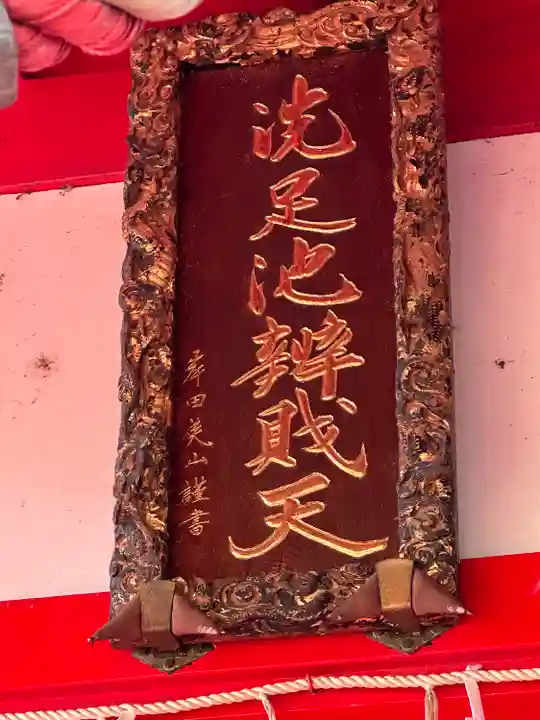 洗足池辨財天
岸田美山謹書